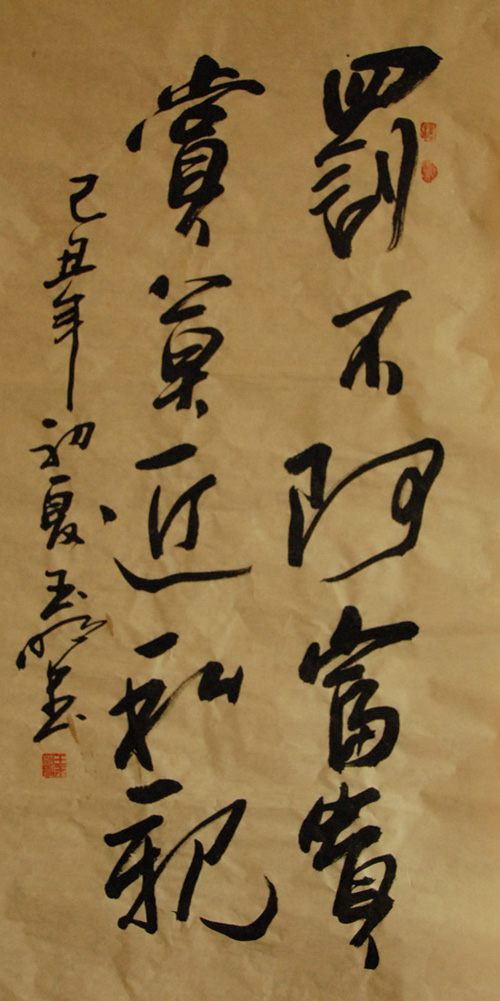 罰不阿富貴
賞莫近私親
己丑年初夏玉